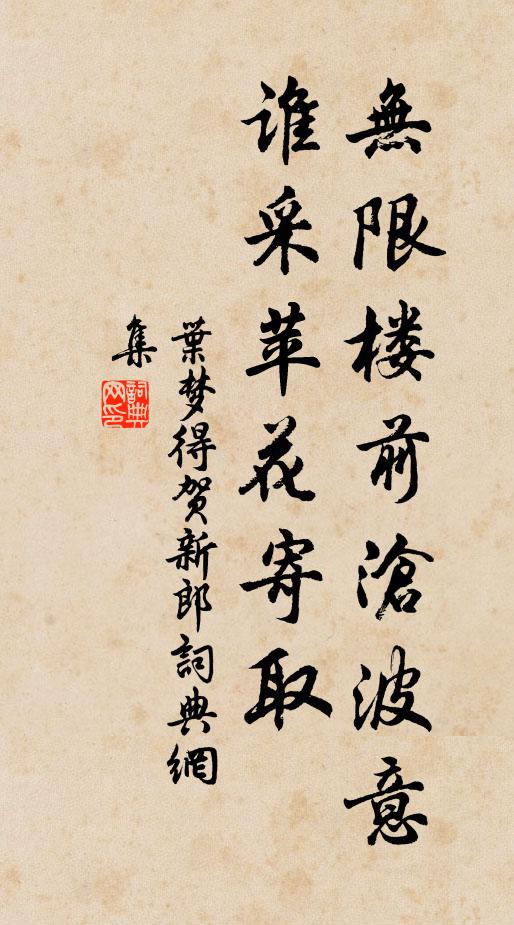 無限楼前滄波意
谁采苹花寄取
葉梦得贺新郎詞典網
集
詞典网印